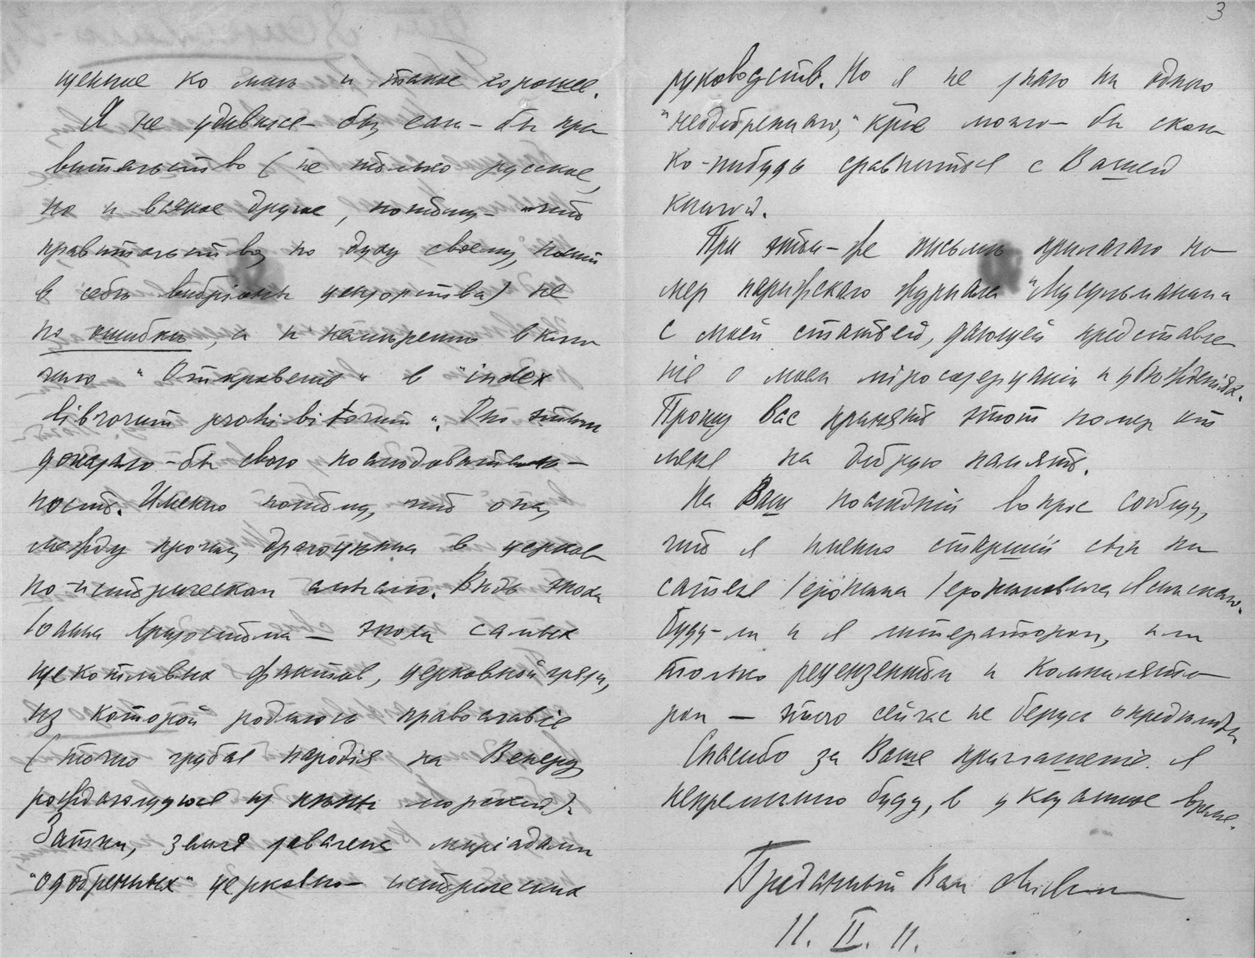 3
щенное ко мне и такое хорошее.
Я не удивился-бы, если-бы пра
вительство (не только русское,
но и всякое другое, потому-что
правительство, по духу своему, носит
в себе вибрионы цензорства) не
по ошибке, а и намеренно вклю
чило "Откровение" в "index
librorum prohibitorum". Оно этим
доказало-бы свою последователь-
ность. Именно потому, что она,
между прочим, драгоценна в церков
но-историческом смысле. Ведь эпоха
Іоанна Хризостома – эпоха самых
щекотливых фактов, церковной грязи,
из которой родилось православіе
(точно грубая пародія на Венеру,
рождающуюся из пены морской).
Затем, земля завалена миріадами
"одобренных" церковно-исторических
руководств. Но я не знаю ни одного
"неодобренного", крое можно-бы сколь
ко-нибудь сравнить с Вашей
книгой.
При этом-же письме прилагаю но
мер парижского журнала "Мусульманин"
с моей статьей, дающей представле
ніе о моем міросозерцаніи и убежденіях.
Прошу Вас принять этот номер от
меня на добрую память.
На Ваш последній вопрос сообщу,
что я именно старший сын пи
сателя Іеронима Іеронимовича Ясинскаго.
Буду-ли и я литератором, или
только рецензентом и компилято
ром – этого сейчас не берусь определить
Спасибо за Ваше приглашеніе. Я
непременно буду, в указанное время.
Преданный Вам
11. II. 11.